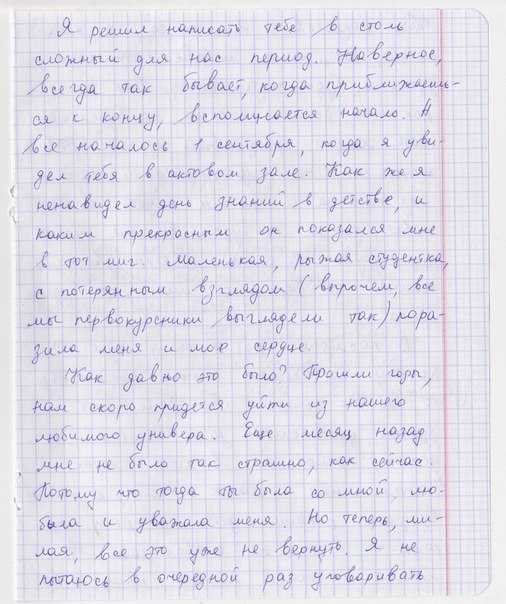 Я решил написать тебе в столь
сложный для нас период. Наверное,
всегда так бывает, когда приближаешь-
ся к концу, вспоминается начало. А
все началось 1 сентября, когда я уви-
дел тебя в актовом зале. Как же я
ненавидел день знаний в детстве, и
каким прекрасным он показался мне
в тот миг. Маленькая, рыжая студентка,
с потерянным взглядом (впрочем, все
мы первокурсники выглядели так) пора-
зила меня и мое сердце.
Как давно это было? Прошли годы,
нам скоро придется уйти из нашего
любимого универа. Еще месяц назад
мне не было так страшно, как сейчас.
Потому что тогда ты была со мной, лю-
била и уважала меня. Но теперь, ми-
лая, все это уже не вернуть. Я не
пытаюсь в очередной раз уговаривать